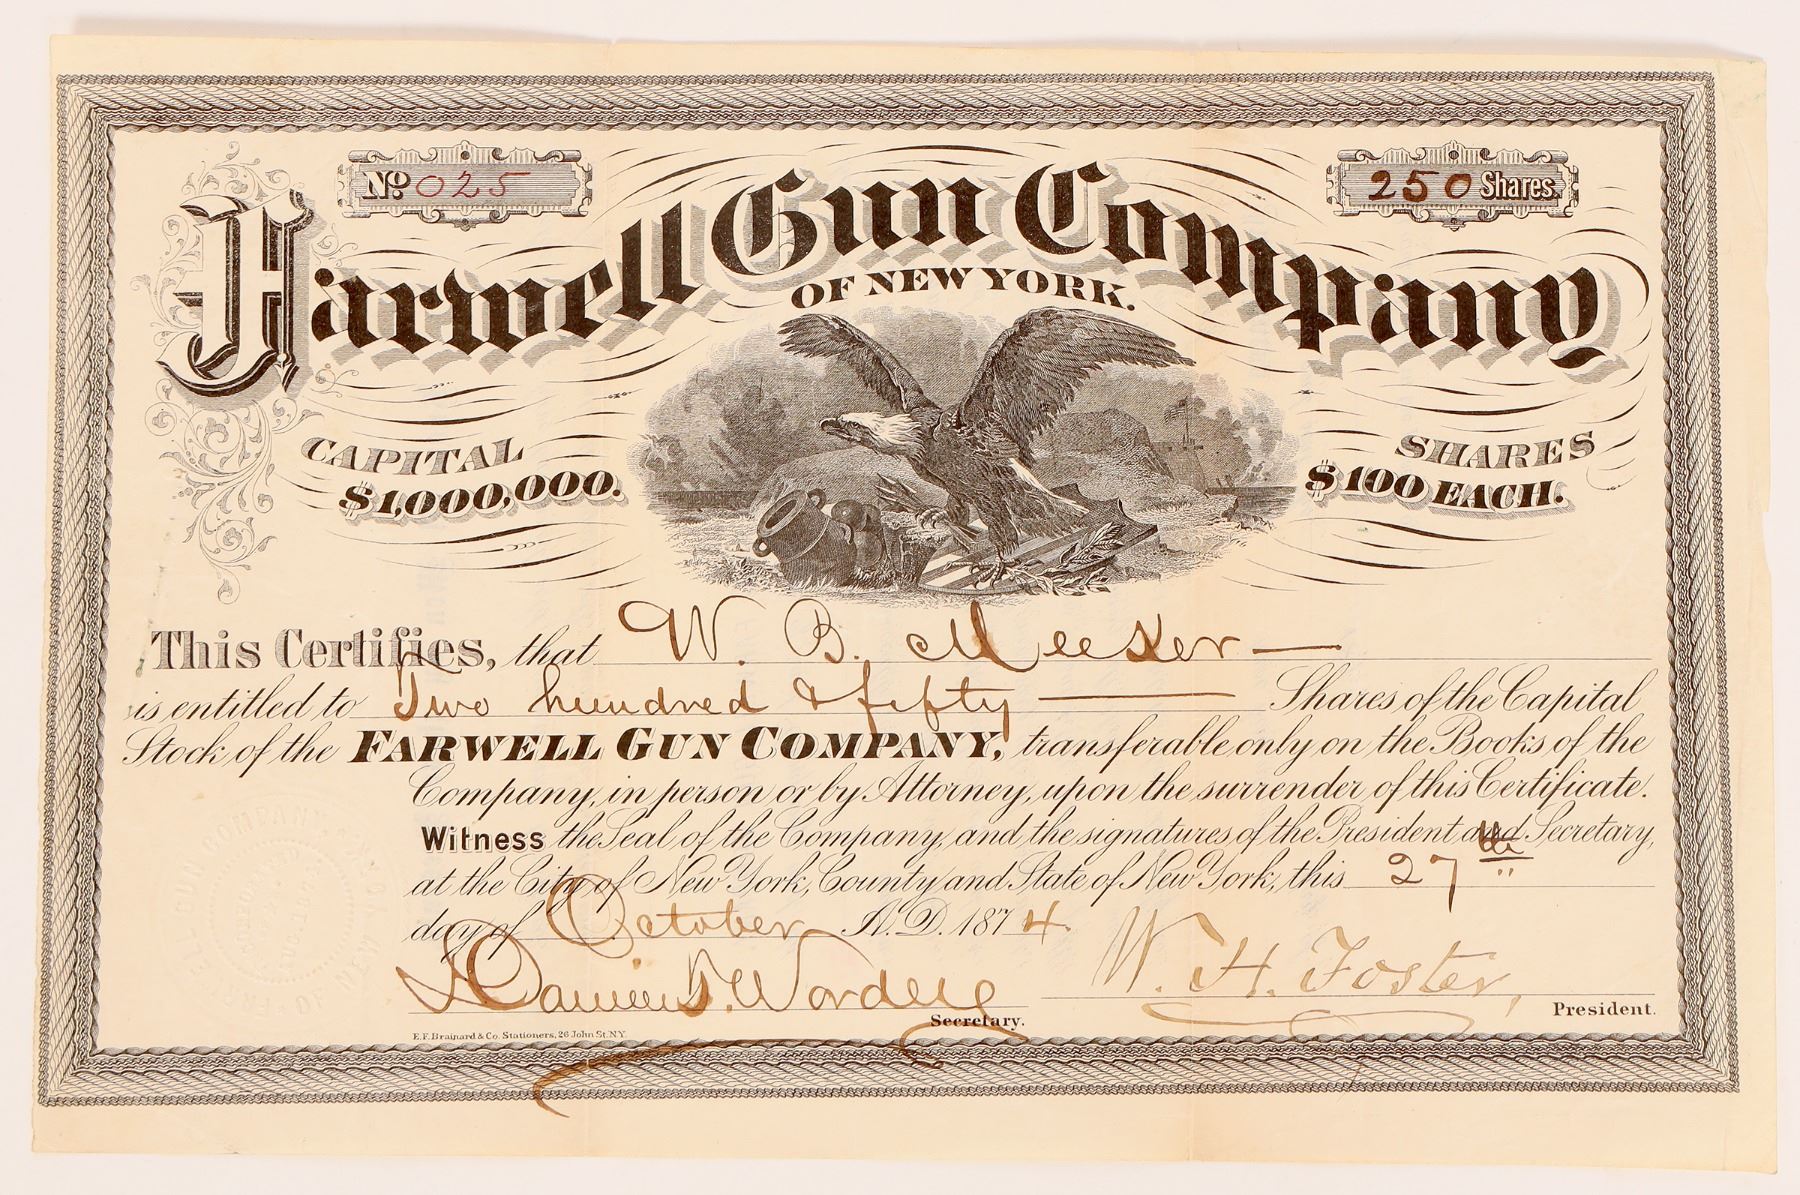 No. 025
250 Shares.
Farwell Gun Company
OF NEW YORK.
CAPITAL
$1,000,000.
SHARES
$100 EACH.
This Certifies, that W. B. Meeker
is entitled to Two hundred & fifty Shares of the Capital
Stock of the FARWELL GUN COMPANY, transferable only on the Books of the
Company, in person or by Attorney, upon the surrender of this Certificate.
Witness the Seal of the Company, and the signatures of the President and Secretary,
at the City of New York, County and State of New York, this 27th
day of October A.D. 1874.
W. H. Foster,
Secretary.
President.
E.F. Brainard & Co. Stationers, 26 John St. N.Y.
FARWELL GUN COMPANY OF NEW YORK